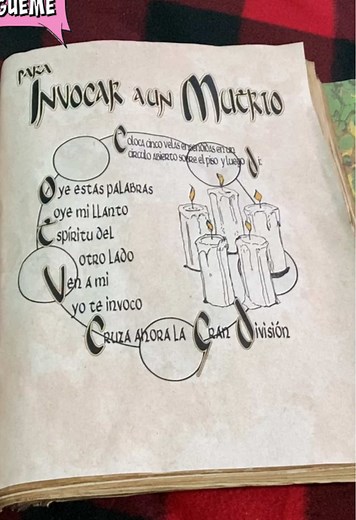 GUEME
PARA
INVOCAR A UN MUERTO
COLOCA CINCO VELAS ENCENDIDAS EN UN
CIRCULO ABIERTO SOBRE EL PISO Y LUEGO di:
OYE ESTAS PALABRAS
OYE MI LLANTO
ESPÍRITU DEL
OTRO LADO
VEN A MI
YO TE INVOCO
CRUZA AHORA LA GRAN dIVISIÓN